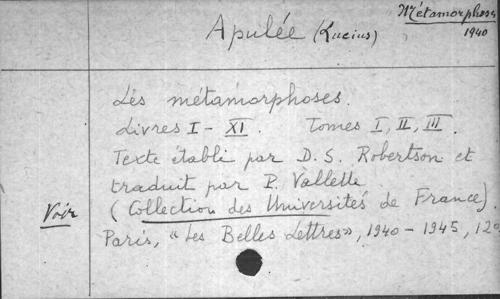 Métamorphoses
1940
Apulée (Lucius)
Les métamorphoses.
Livres I - XI. Tomes I, II, III.
Texte établi par D. S. Robertson et
traduit par P. Vallette
Voir
(Collection des Universités de France).
Paris, "Les Belles Lettres", 1940 - 1945, 12º